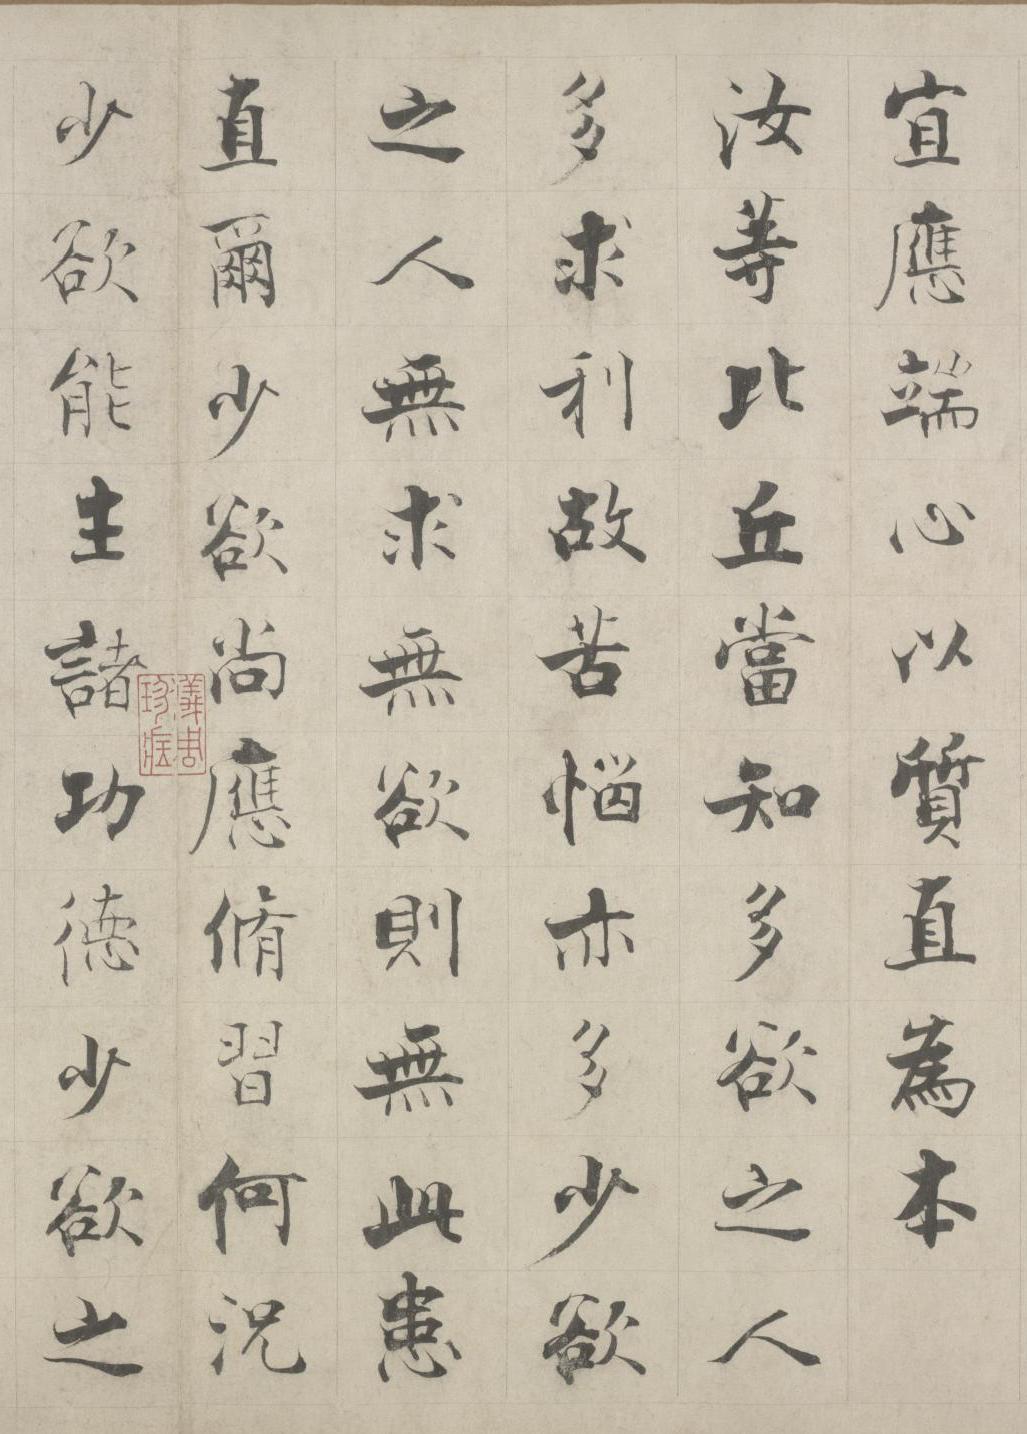 宜應端心以質直為本
汝等比丘當知多欲之人
多求利故苦惱亦多少欲
之人無求無欲則無此患
直爾少欲尚應脩習何況
少欲能生諸功德少欲之